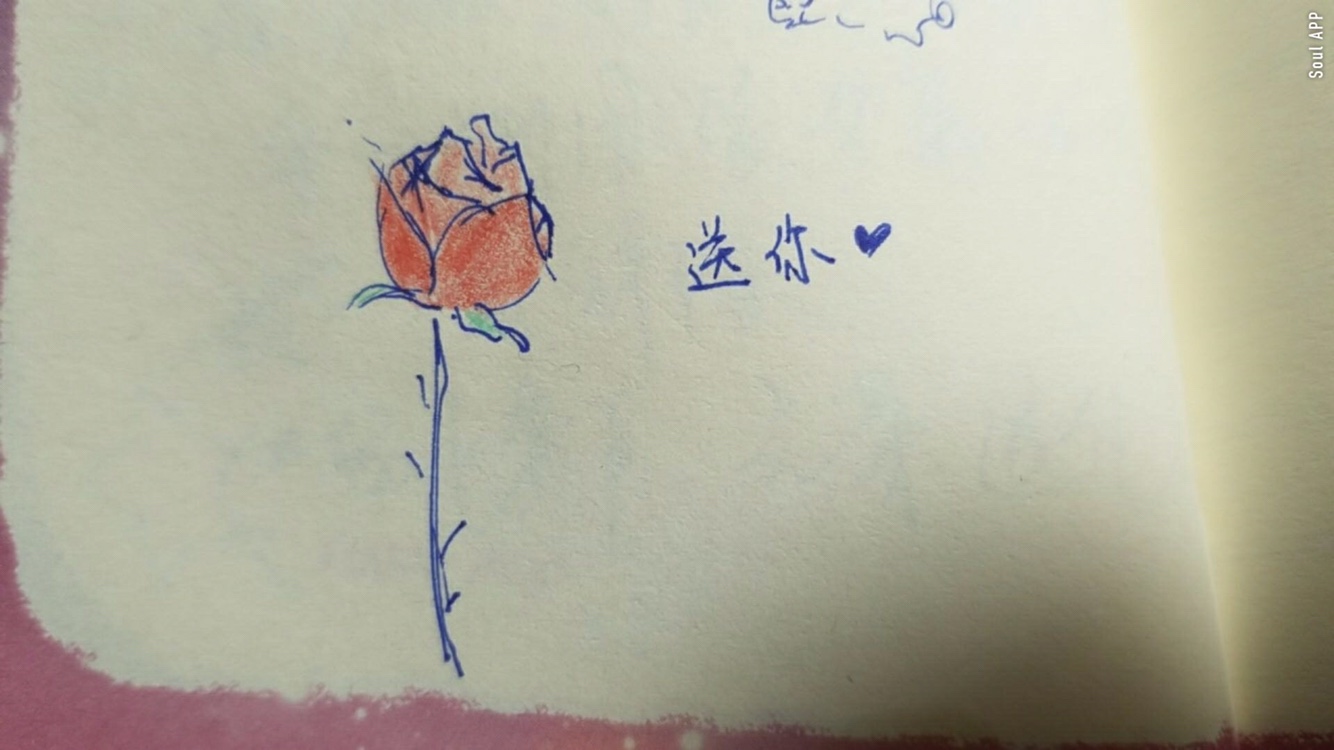 送你♥
Soul APP